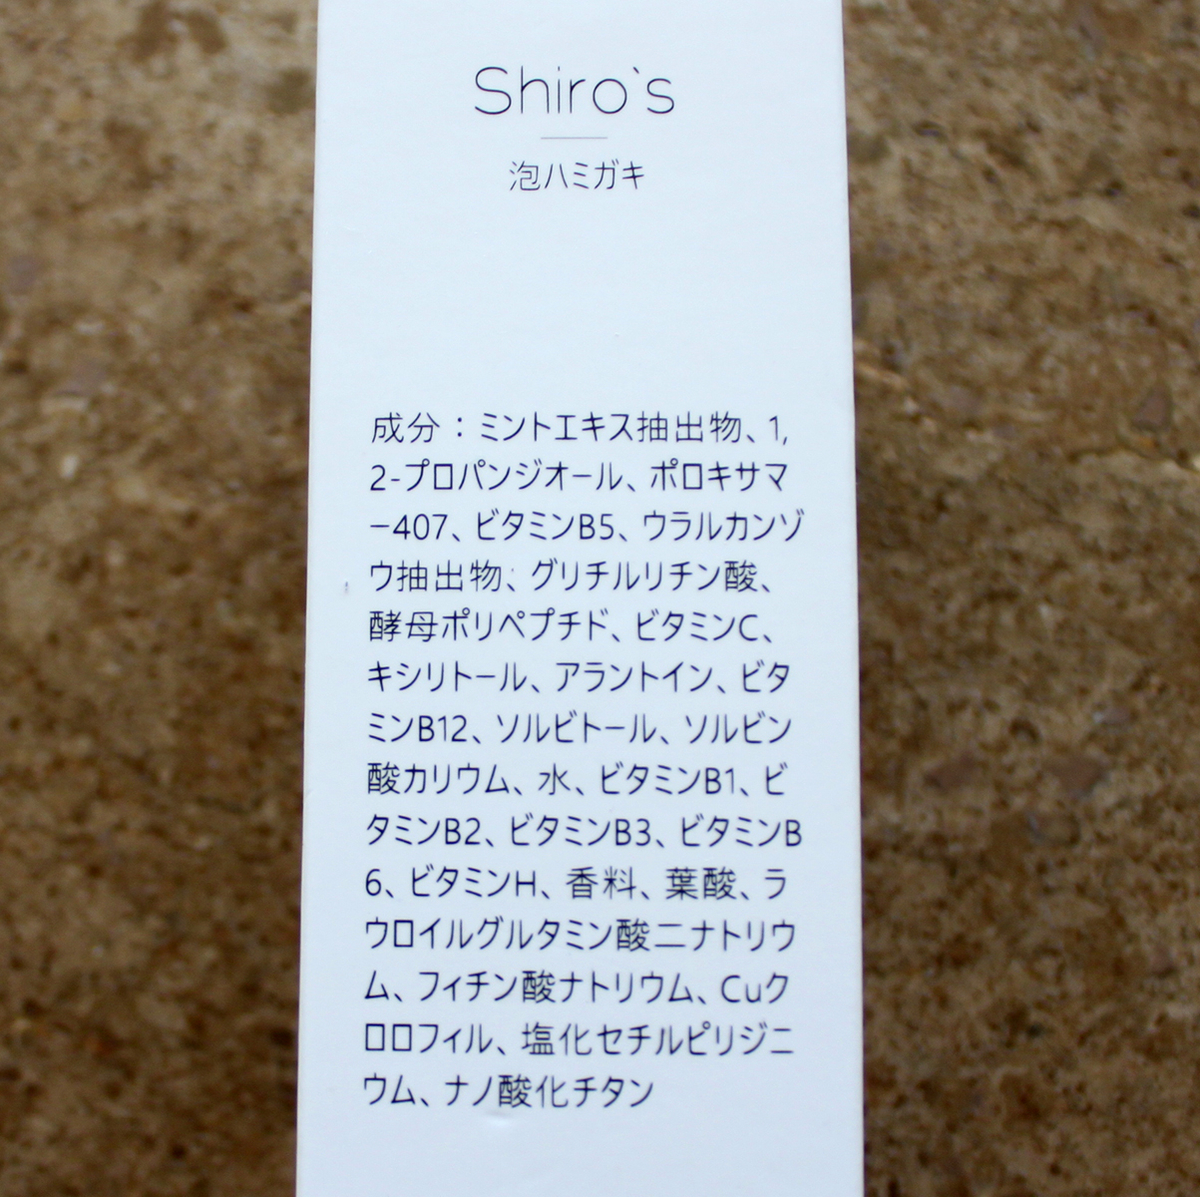 Shiro`s
泡ハミガキ
成分：ミントエキス抽出物、1,
2-プロパンジオール、ポロキサマ
ー407、ビタミンB5、ウラルカンゾ
ウ抽出物、グリチルリチン酸、
酵母ポリペプチド、ビタミンC、
キシリトール、アラントイン、ビタ
ミンB12、ソルビトール、ソルビン
酸カリウム、水、ビタミンB1、ビ
タミンB2、ビタミンB3、ビタミンB
6、ビタミンH、香料、葉酸、ラ
ウロイルグルタミン酸二ナトリウ
ム、フィチン酸ナトリウム、Cuク
ロロフィル、塩化セチルピリジニ
ウム、ナノ酸化チタン